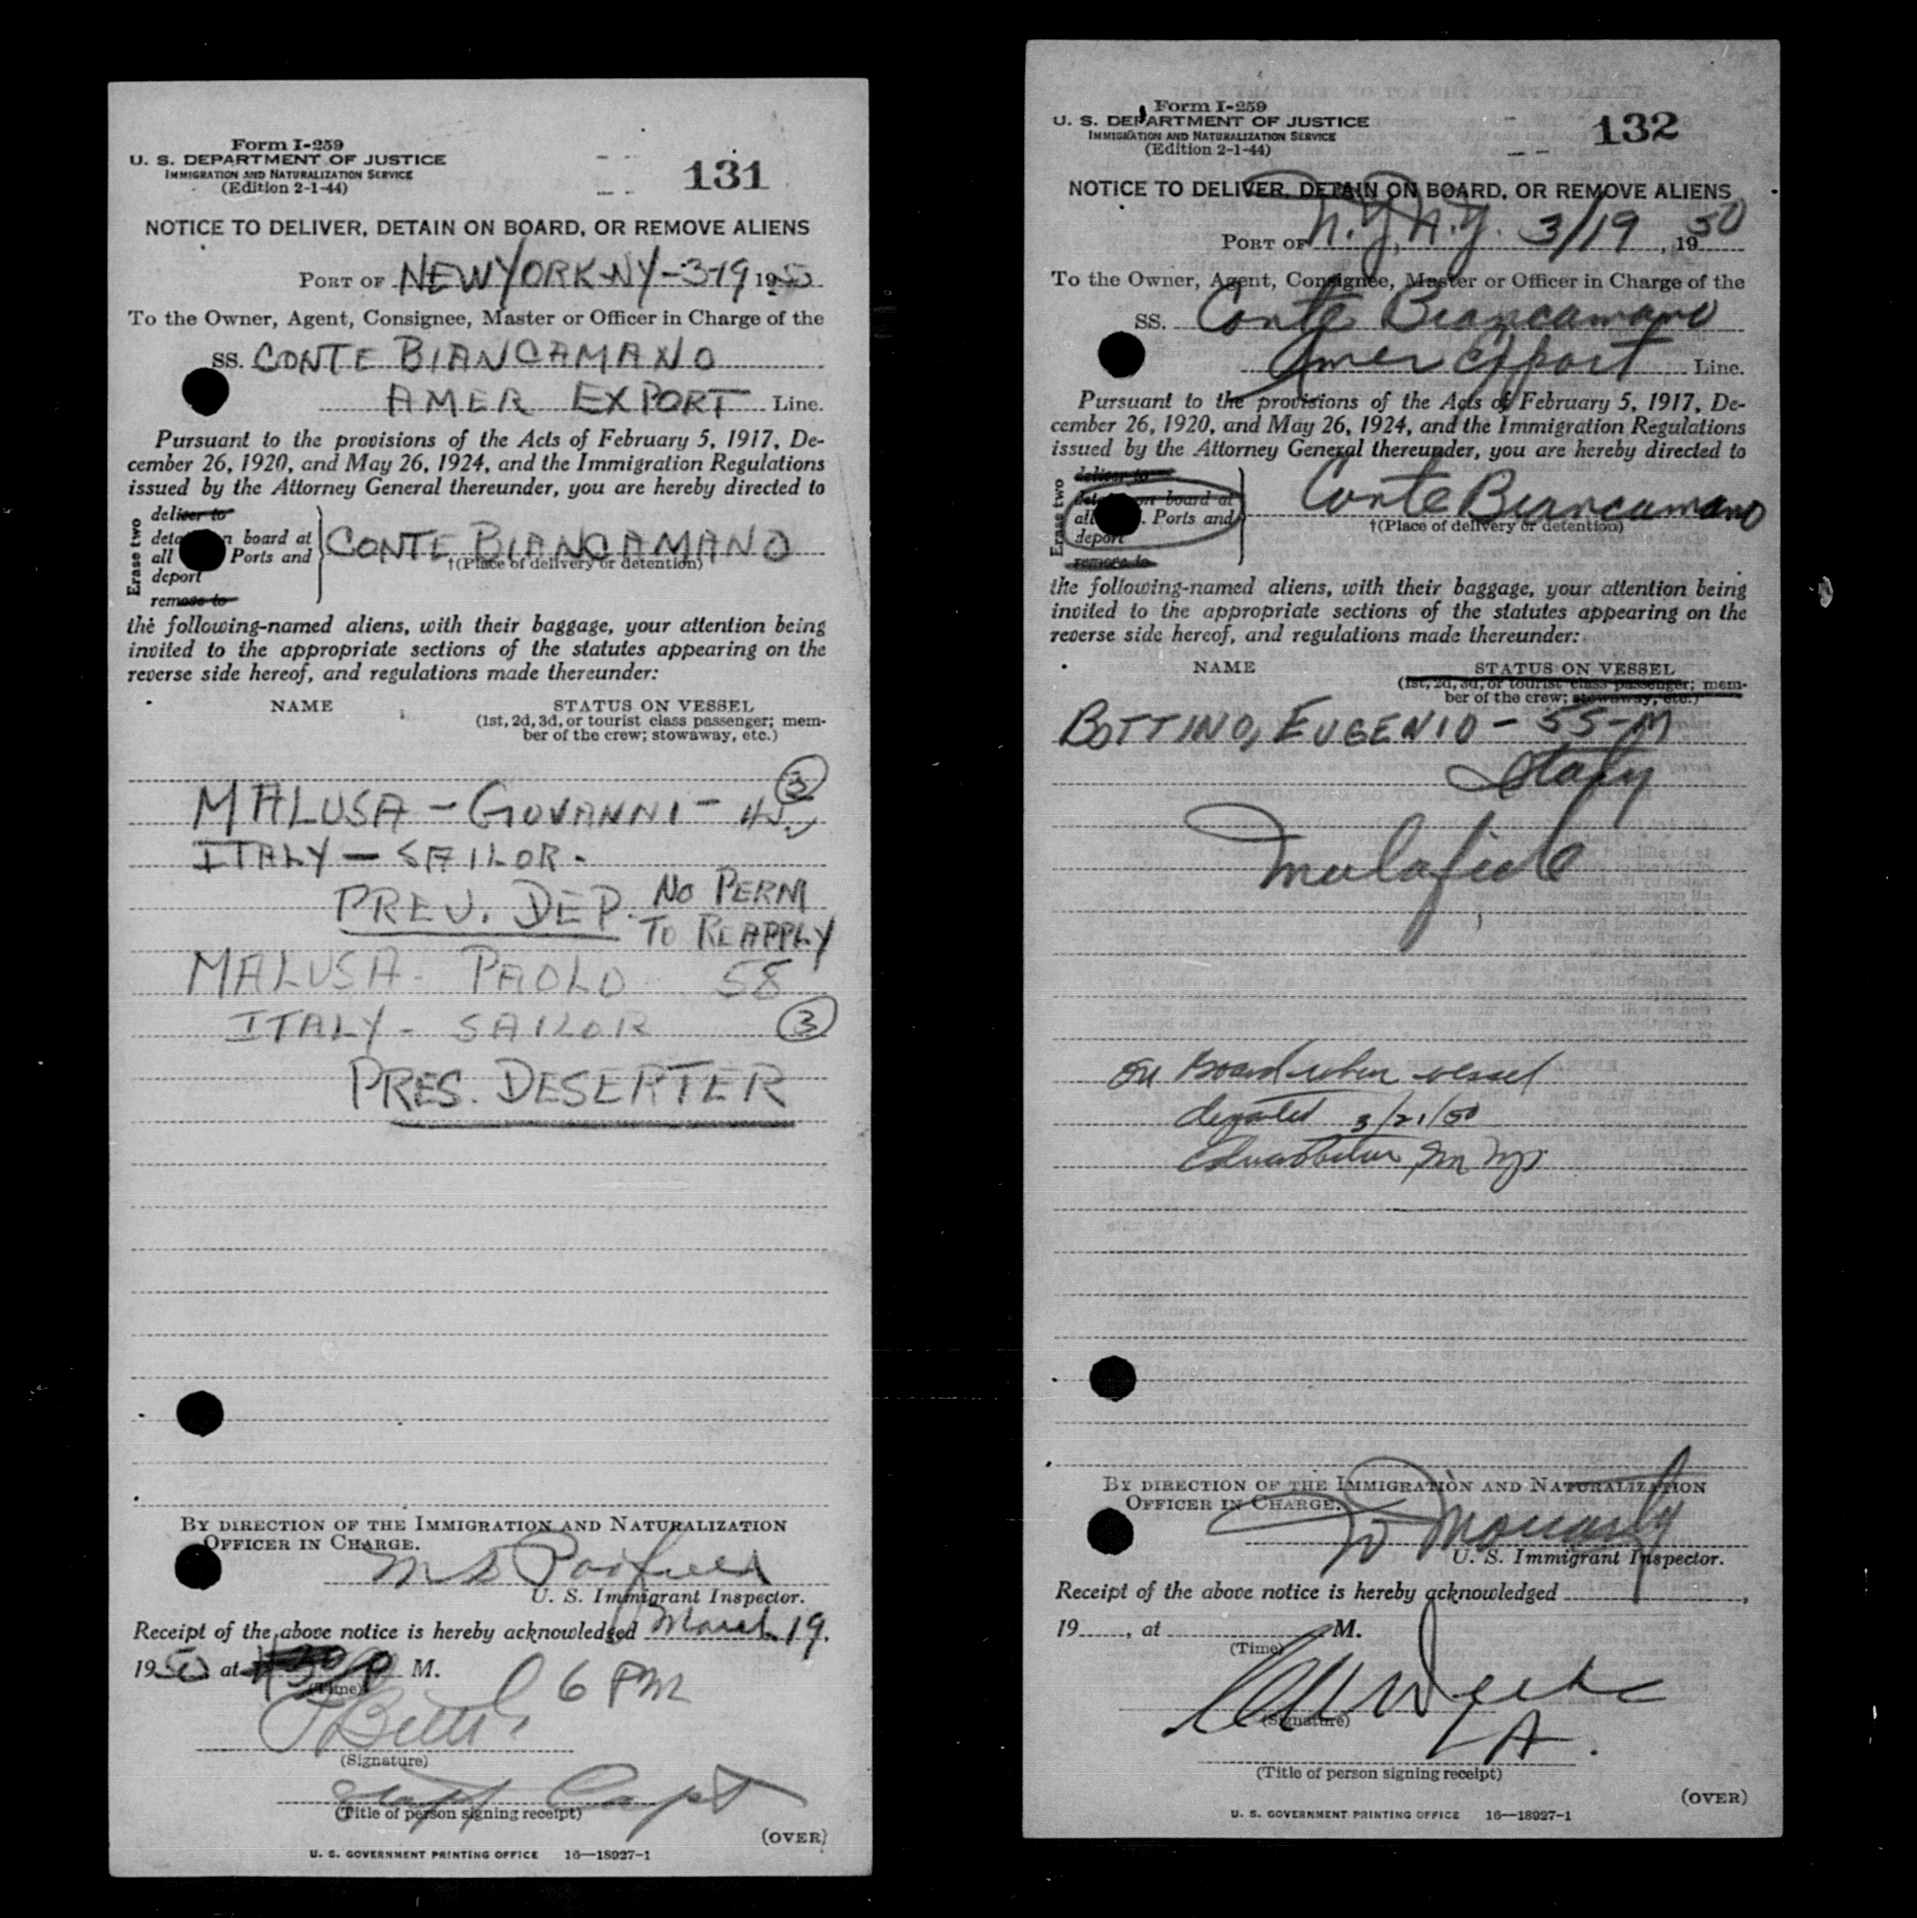 Form I-259
U. S. DEPARTMENT OF JUSTICE
IMMIGRATION AND NATURALIZATION SERVICE
(Edition 2-1-44)
131
NOTICE TO DELIVER, DETAIN ON BOARD, OR REMOVE ALIENS
PORT OF NEW YORK-NY-3-19 1950
To the Owner, Agent, Consignee, Master or Officer in Charge of the
SS. CONTE BIANCAMANO
AMER EXPORT Line.
Pursuant to the provisions of the Acts of February 5, 1917, De-
cember 26, 1920, and May 26, 1924, and the Immigration Regulations
issued by the Attorney General thereunder, you are hereby directed to
Erase two
deliver to
board at
all Ports and
deport
remove to
CONTE BIANCAMANO
†(Place of delivery or detention)
the following-named aliens, with their baggage, your attention being
invited to the appropriate sections of the statutes appearing on the
reverse side hereof, and regulations made thereunder:
NAME STATUS ON VESSEL
(1st, 2d, 3d, or tourist class passenger; mem-
ber of the crew; stowaway, etc.)
3
MALUSA - GIOVANNI -
ITALY - SAILOR.
PREV. DEP. NO PERM
TO REAPPLY
MALUSA - PAOLO 58
ITALY - SAILOR 3
PRES. DESERTER
BY DIRECTION OF THE IMMIGRATION AND NATURALIZATION
OFFICER IN CHARGE.
U. S. Immigrant Inspector.
Receipt of the above notice is hereby acknowledged March 19,
1950 at M.
(Time)
6 PM
(Signature)
Capt
(Title of person signing receipt)
(OVER)
U. S. GOVERNMENT PRINTING OFFICE 16—18927-1
Form I-259
U. S. DEPARTMENT OF JUSTICE
IMMIGRATION AND NATURALIZATION SERVICE
(Edition 2-1-44)
132
NOTICE TO DELIVER, DETAIN ON BOARD, OR REMOVE ALIENS
PORT OF N.Y, N.Y. 3/19, 1950
To the Owner, Agent, Consignee, Master or Officer in Charge of the
SS. Conte Biancamano
Amer Export Line.
Pursuant to the provisions of the Acts of February 5, 1917, De-
cember 26, 1920, and May 26, 1924, and the Immigration Regulations
issued by the Attorney General thereunder, you are hereby directed to
Erase two
deliver to
on board at
all Ports and
deport
remove to
Conte Biancamano
†(Place of delivery or detention)
the following-named aliens, with their baggage, your attention being
invited to the appropriate sections of the statutes appearing on the
reverse side hereof, and regulations made thereunder:
NAME STATUS ON VESSEL
(1st, 2d, 3d, or tourist class passenger; mem-
ber of the crew; stowaway, etc.)
BOTTINO, EUGENIO - 55-M
Italy
Malafide
On Board when vessel
departed 3/21/50
BY DIRECTION OF THE IMMIGRATION AND NATURALIZATION
OFFICER IN CHARGE.
U. S. Immigrant Inspector.
Receipt of the above notice is hereby acknowledged
19 , at M.
(Time)
(Signature)
(Title of person signing receipt)
(OVER)
U. S. GOVERNMENT PRINTING OFFICE 16—18927-1